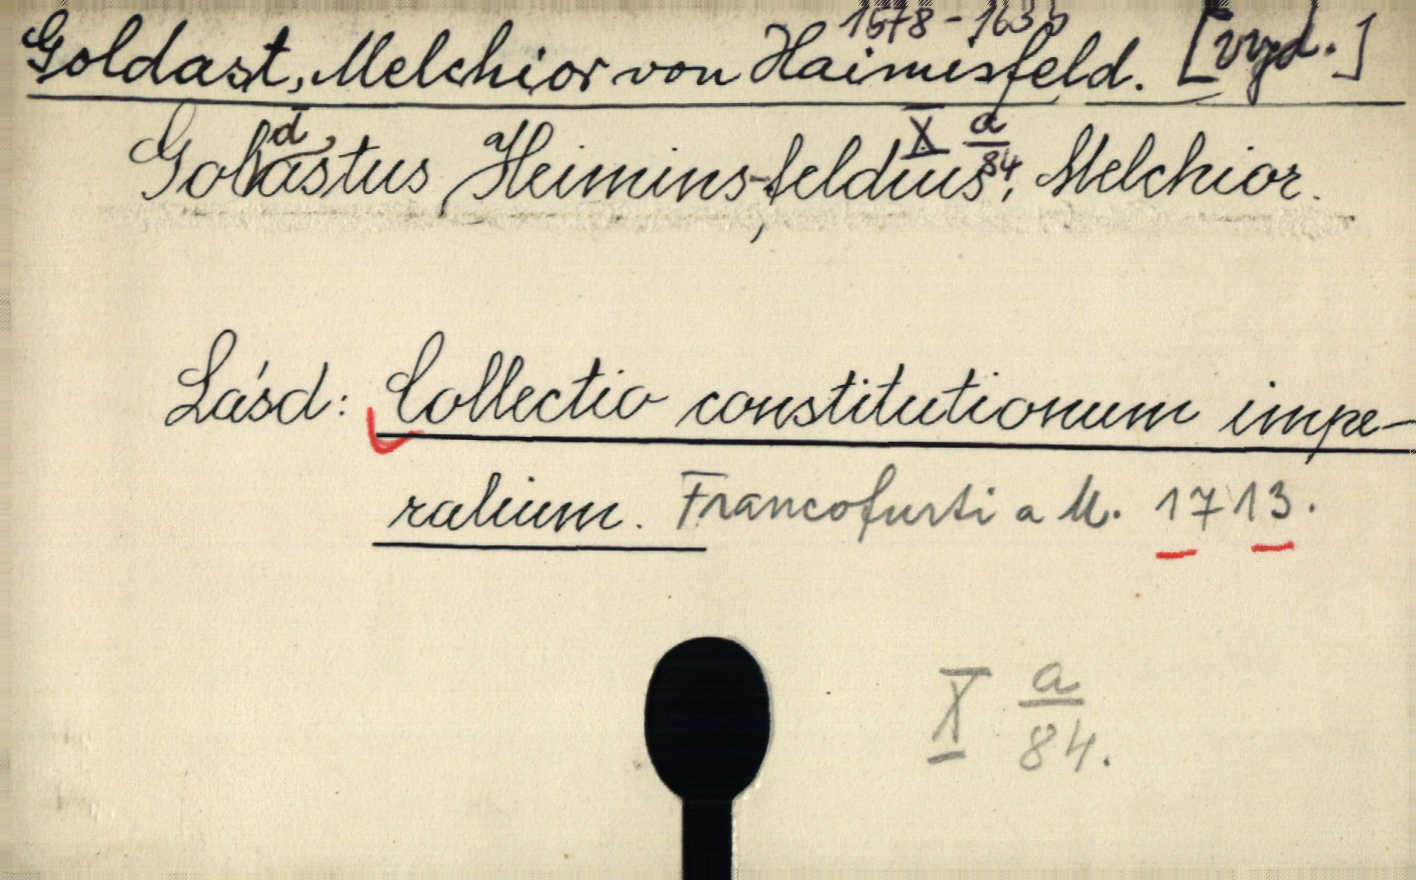 1578-1635
Goldast, Melchior von Haimisfeld. [vyd.]
X a/84
Goldastus, Heimins-feldius, Melchior.
Lásd: Collectio constitutionum impe-
ralium. Francofurti a M. 1713.
X a/84.